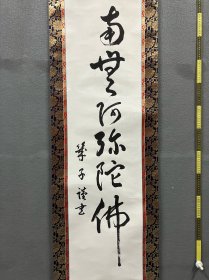 南無阿弥陀佛
葉子謹書